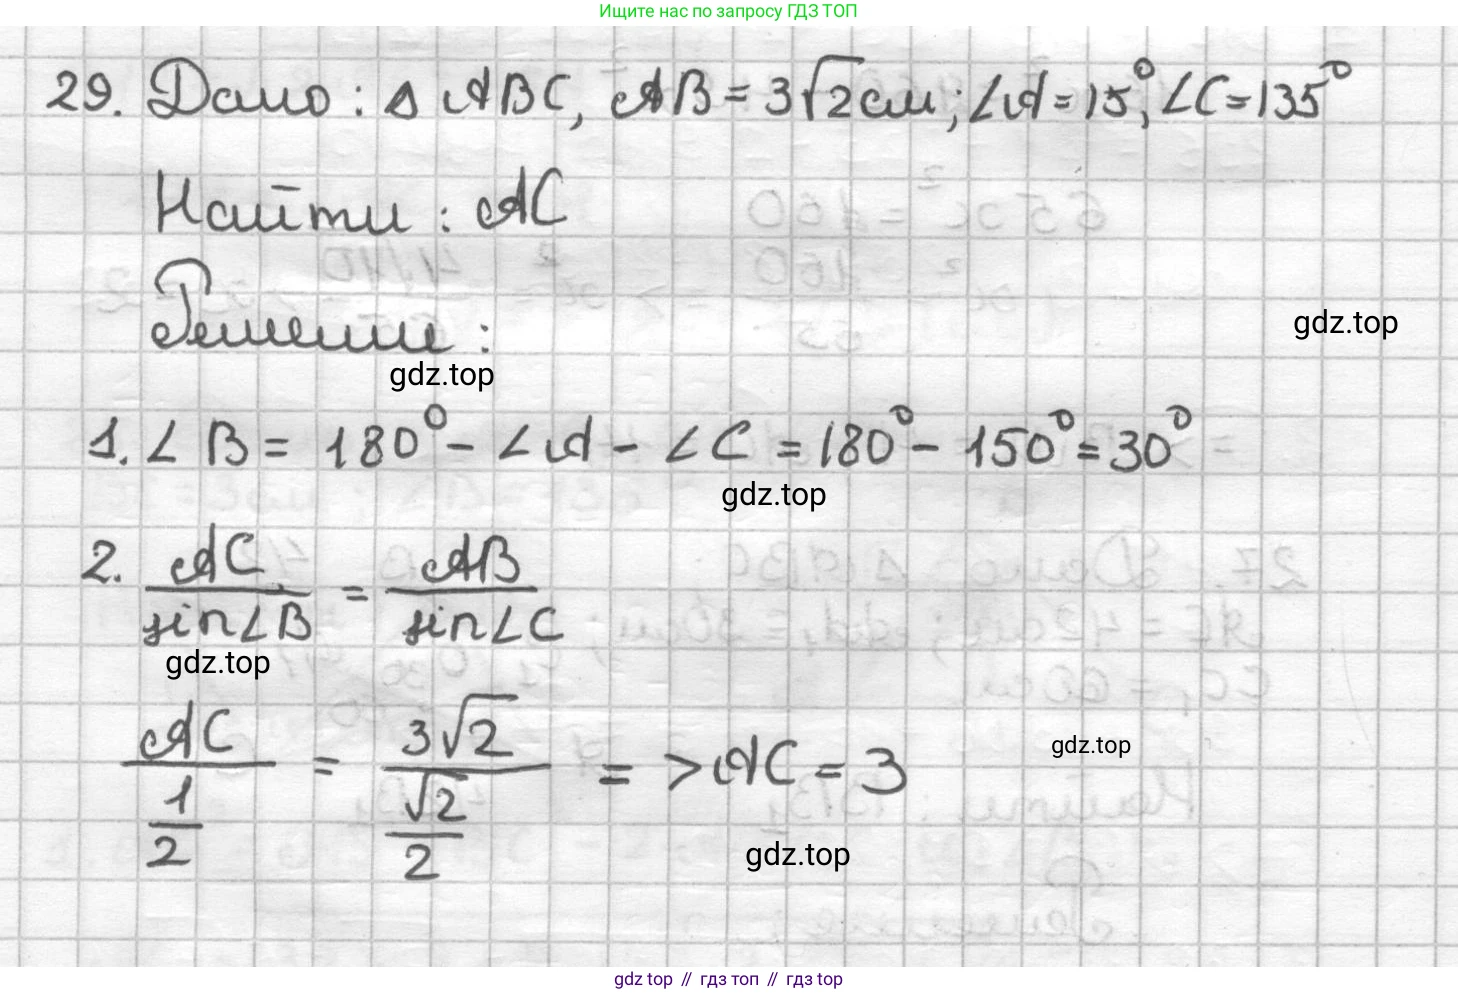 Ищите нас по запросу ГДЗ ТОП
29. Дано: △ ABC, AB = 3√2 см; ∠A = 15°, ∠C = 135°
Найти: AC
gdz.top
Решение:
gdz.top
1. ∠B = 180° - ∠A - ∠C = 180° - 150° = 30°
gdz.top
2. AC/sin∠B = AB/sin∠C
gdz.top
AC/(1/2) = 3√2/(√2/2) => AC = 3
gdz.top
gdz.top
gdz top // гдз топ // gdz.top